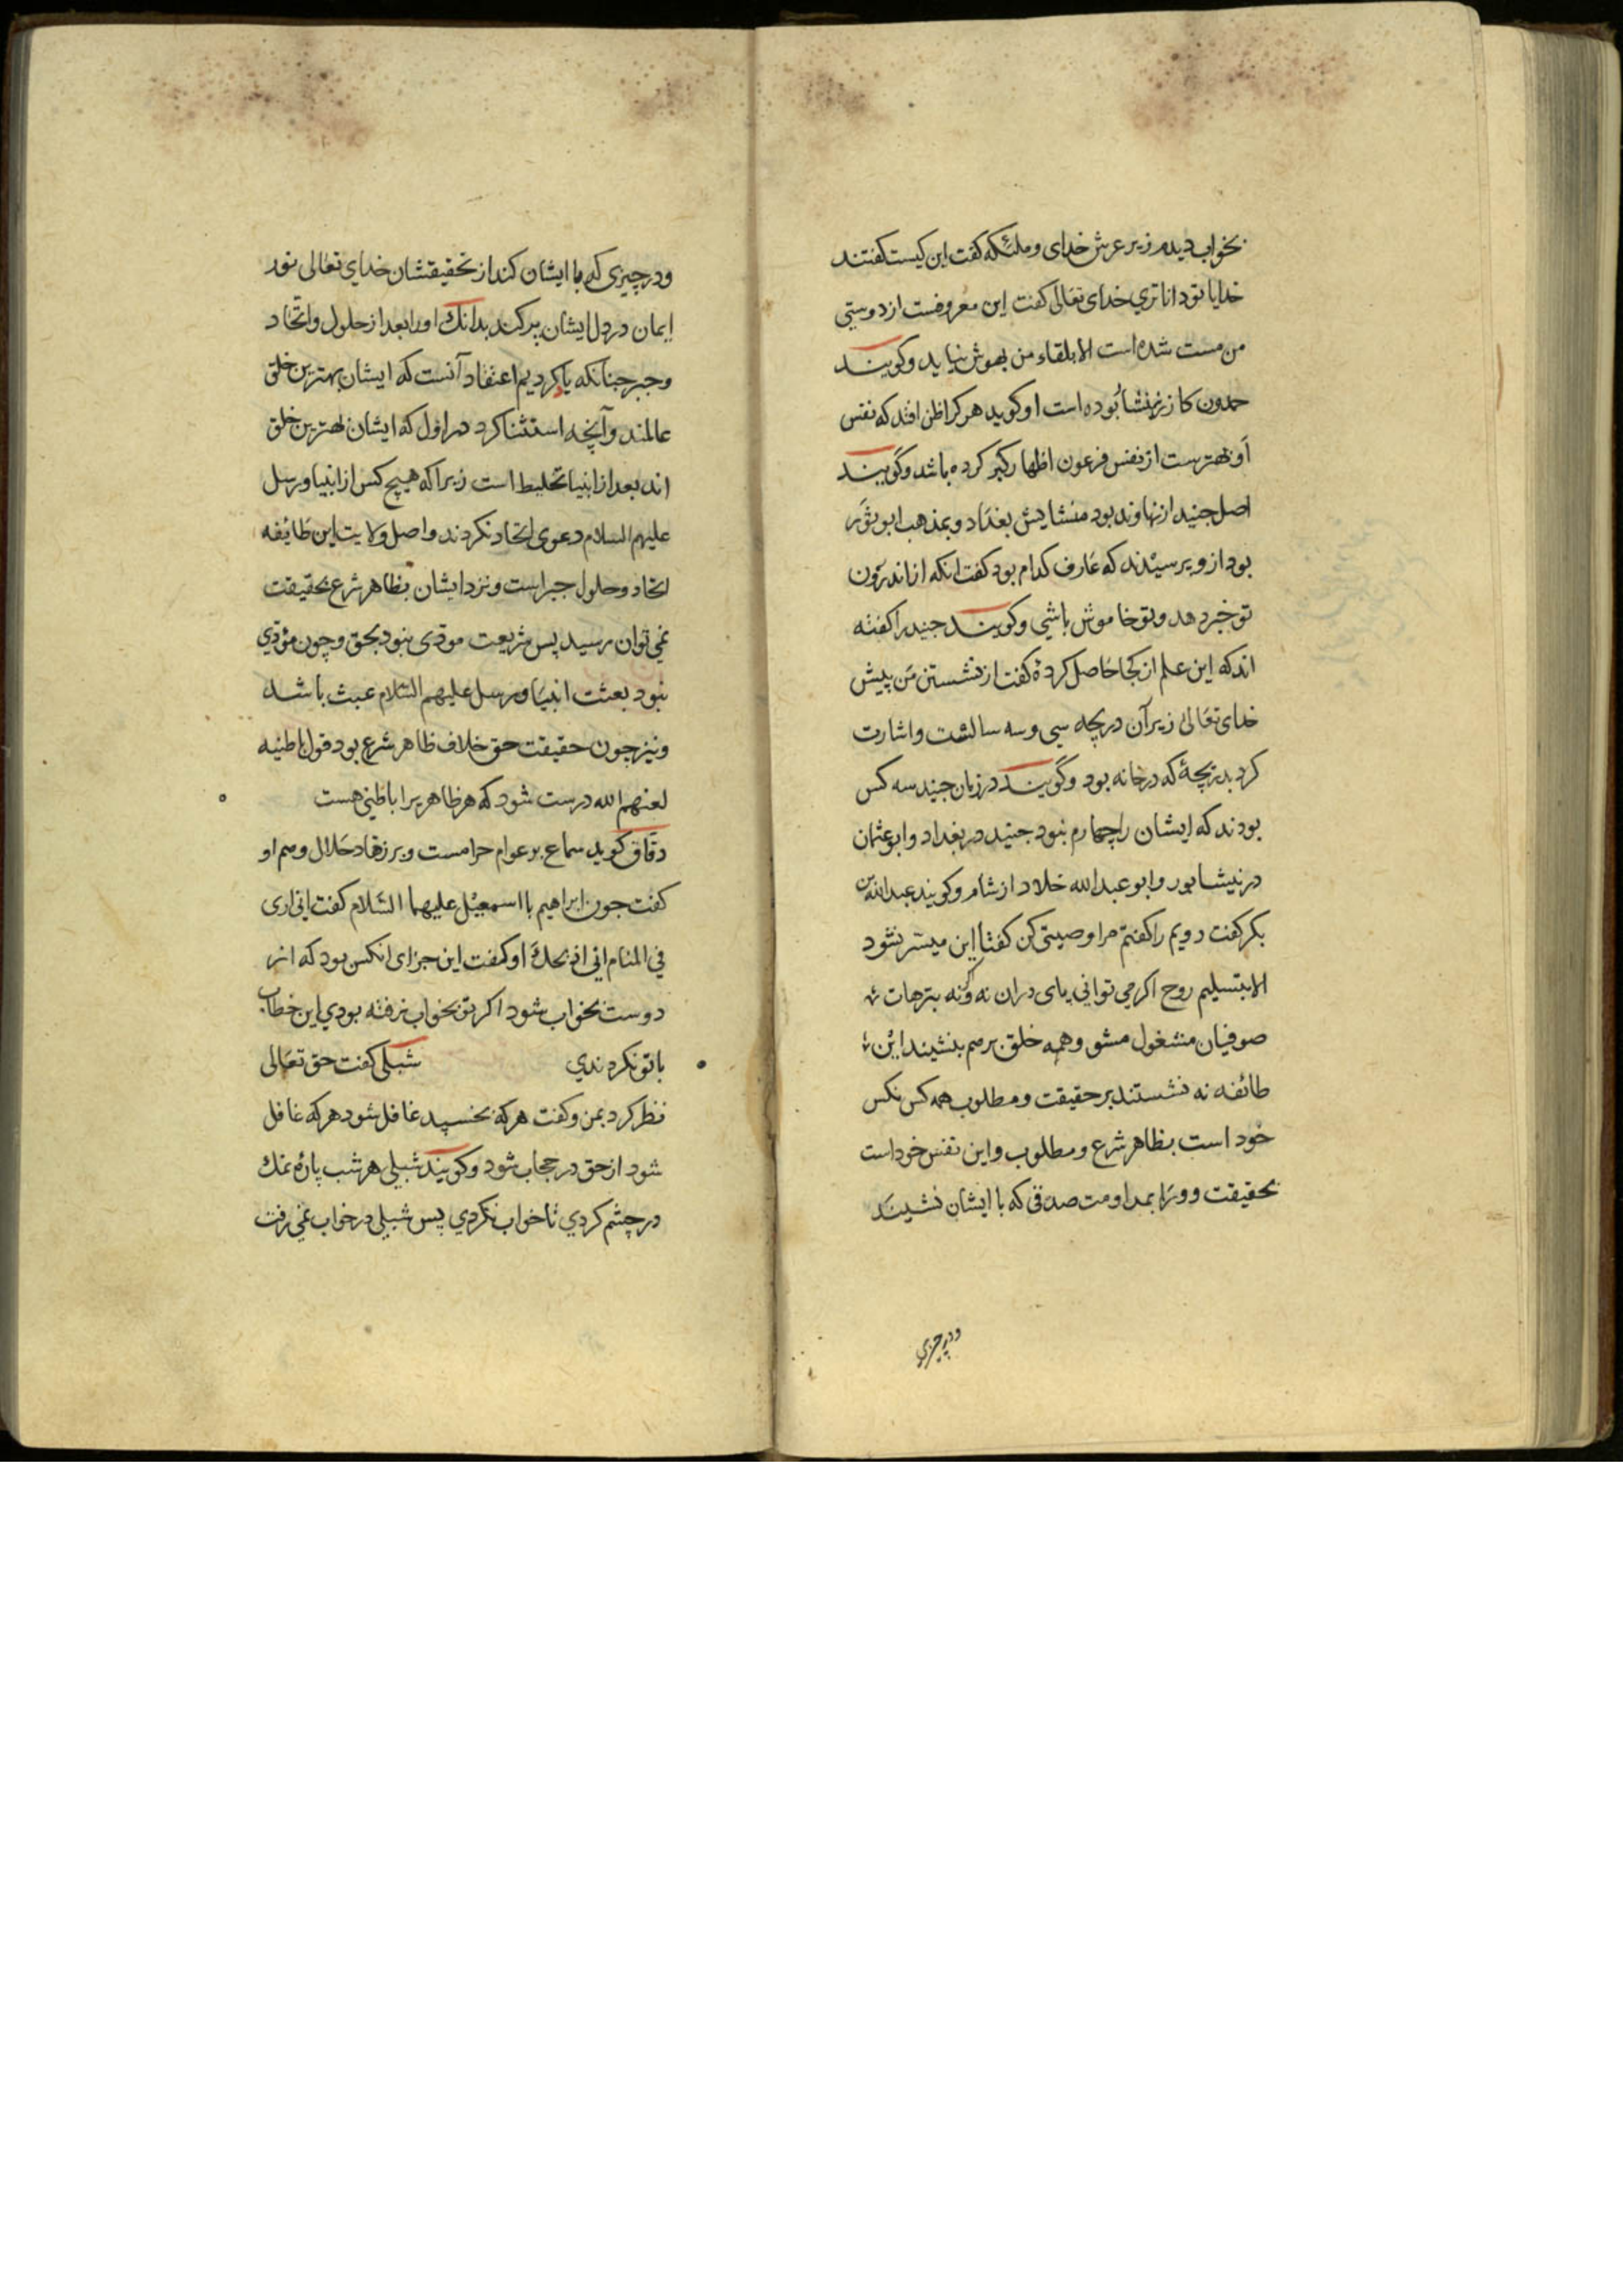 بخواب دیدم زیر عرش خدای و ملئکه کفت این کیست کفتند
خدایا تو داناتری خدای تعالی کفت این معروفست از دوستی
من مست شده است الا بلقاء من بهوش نیاید و کویند
حمدون کازر نیشابوده است او کوید هر کرا ظن افتد که نفس
او بهترست از نفس فرعون اظهار کبر کرده باشد و کویند
اصل جنید از نهاوند بود منشایش بغداد و بمذهب ابو ثور
بود از و پرسیدند که عارف کدام بود کفت انکه از اندرون
تو خبر دهد و تو خاموش باشی و کویند جنید را کفته
اند که این علم از کجا حاصل کردهٔ کفت از نشستن من پیش
خدای تعالی زیر آن دریچه سی و سه سالست و اشارت
کرد بدریچهٔ که در خانه بود و کویند در زمان جنید سه کس
بودند که ایشان را چهارم نبود جنید در بغداد و ابو عثمان
در نیشابور و ابو عبد الله خلاد از شام و کویند عبد الله بن
بکر کفت رویم را کفتم مرا وصیتی کن کفتا این میسر نشود
الا بتسلیم روح اکر می توانی پای دران نه و کرنه بترهات
صوفیان مشغول مشو و همه خلق بر سم بنشیند این
طائفه نه نشستند بر حقیقت و مطلوب همه کس نکس
خود است بظاهر شرع و مطلوب و این نفس خود است
بحقیقت و ورا بمداومت صدقی که با ایشان نشیند
و در چیزی
و در چیزی که با ایشان کند از تحقیقشان خدای تعالی نور
ایمان در دل ایشان پر کند بدانک اورا بعد از حلول و اتحاد
و جبر جنانکه یاد کردیم اعتقاد آنست که ایشان بهترین خلق
عالمند و آنچه استثنا کرد در اول که ایشان بهترین خلق
اند بعد از انبیا تخلیط است زیرا که هیچ کس از انبیا و رسل
علیهم السلام دعوی اتحاد نکردند و اصل ولایت این طایفه
اتحاد و حلول جبر است و نزد ایشان بظاهر شرع بحقیقت
نمی توان رسید پس شریعت مودی نبود بحق و چون مؤدی
نبود بعثت انبیا و رسل علیهم السلام عبث باشد
و نیز چون حقیقت حق خلاف ظاهر شرع بود قول باطنیه
لعنهم الله درست شود که هر ظاهریرا باطنی هست
دقاق کوید سماع بر عوام حرامست و بر زهاد حلال و هم او
کفت جون ابراهیم با اسمعیل علیهما السلام کفت انی اری
فی المنام انی اذبحک او کفت این جزای انکس بود که از
دوست بخواب شود اکر تو بخواب نرفته بودی این خطاب
با تو نکردندی شبلی کفت حق تعالی
نظر کرد بمن و کفت هر که بخسپد غافل شود هر که غافل
شود از حق در حجاب شود و کویند شبلی هر شب پارهٔ نمک
در چشم کردی تا خواب نکردی پس شبلی در خواب نمی رفت